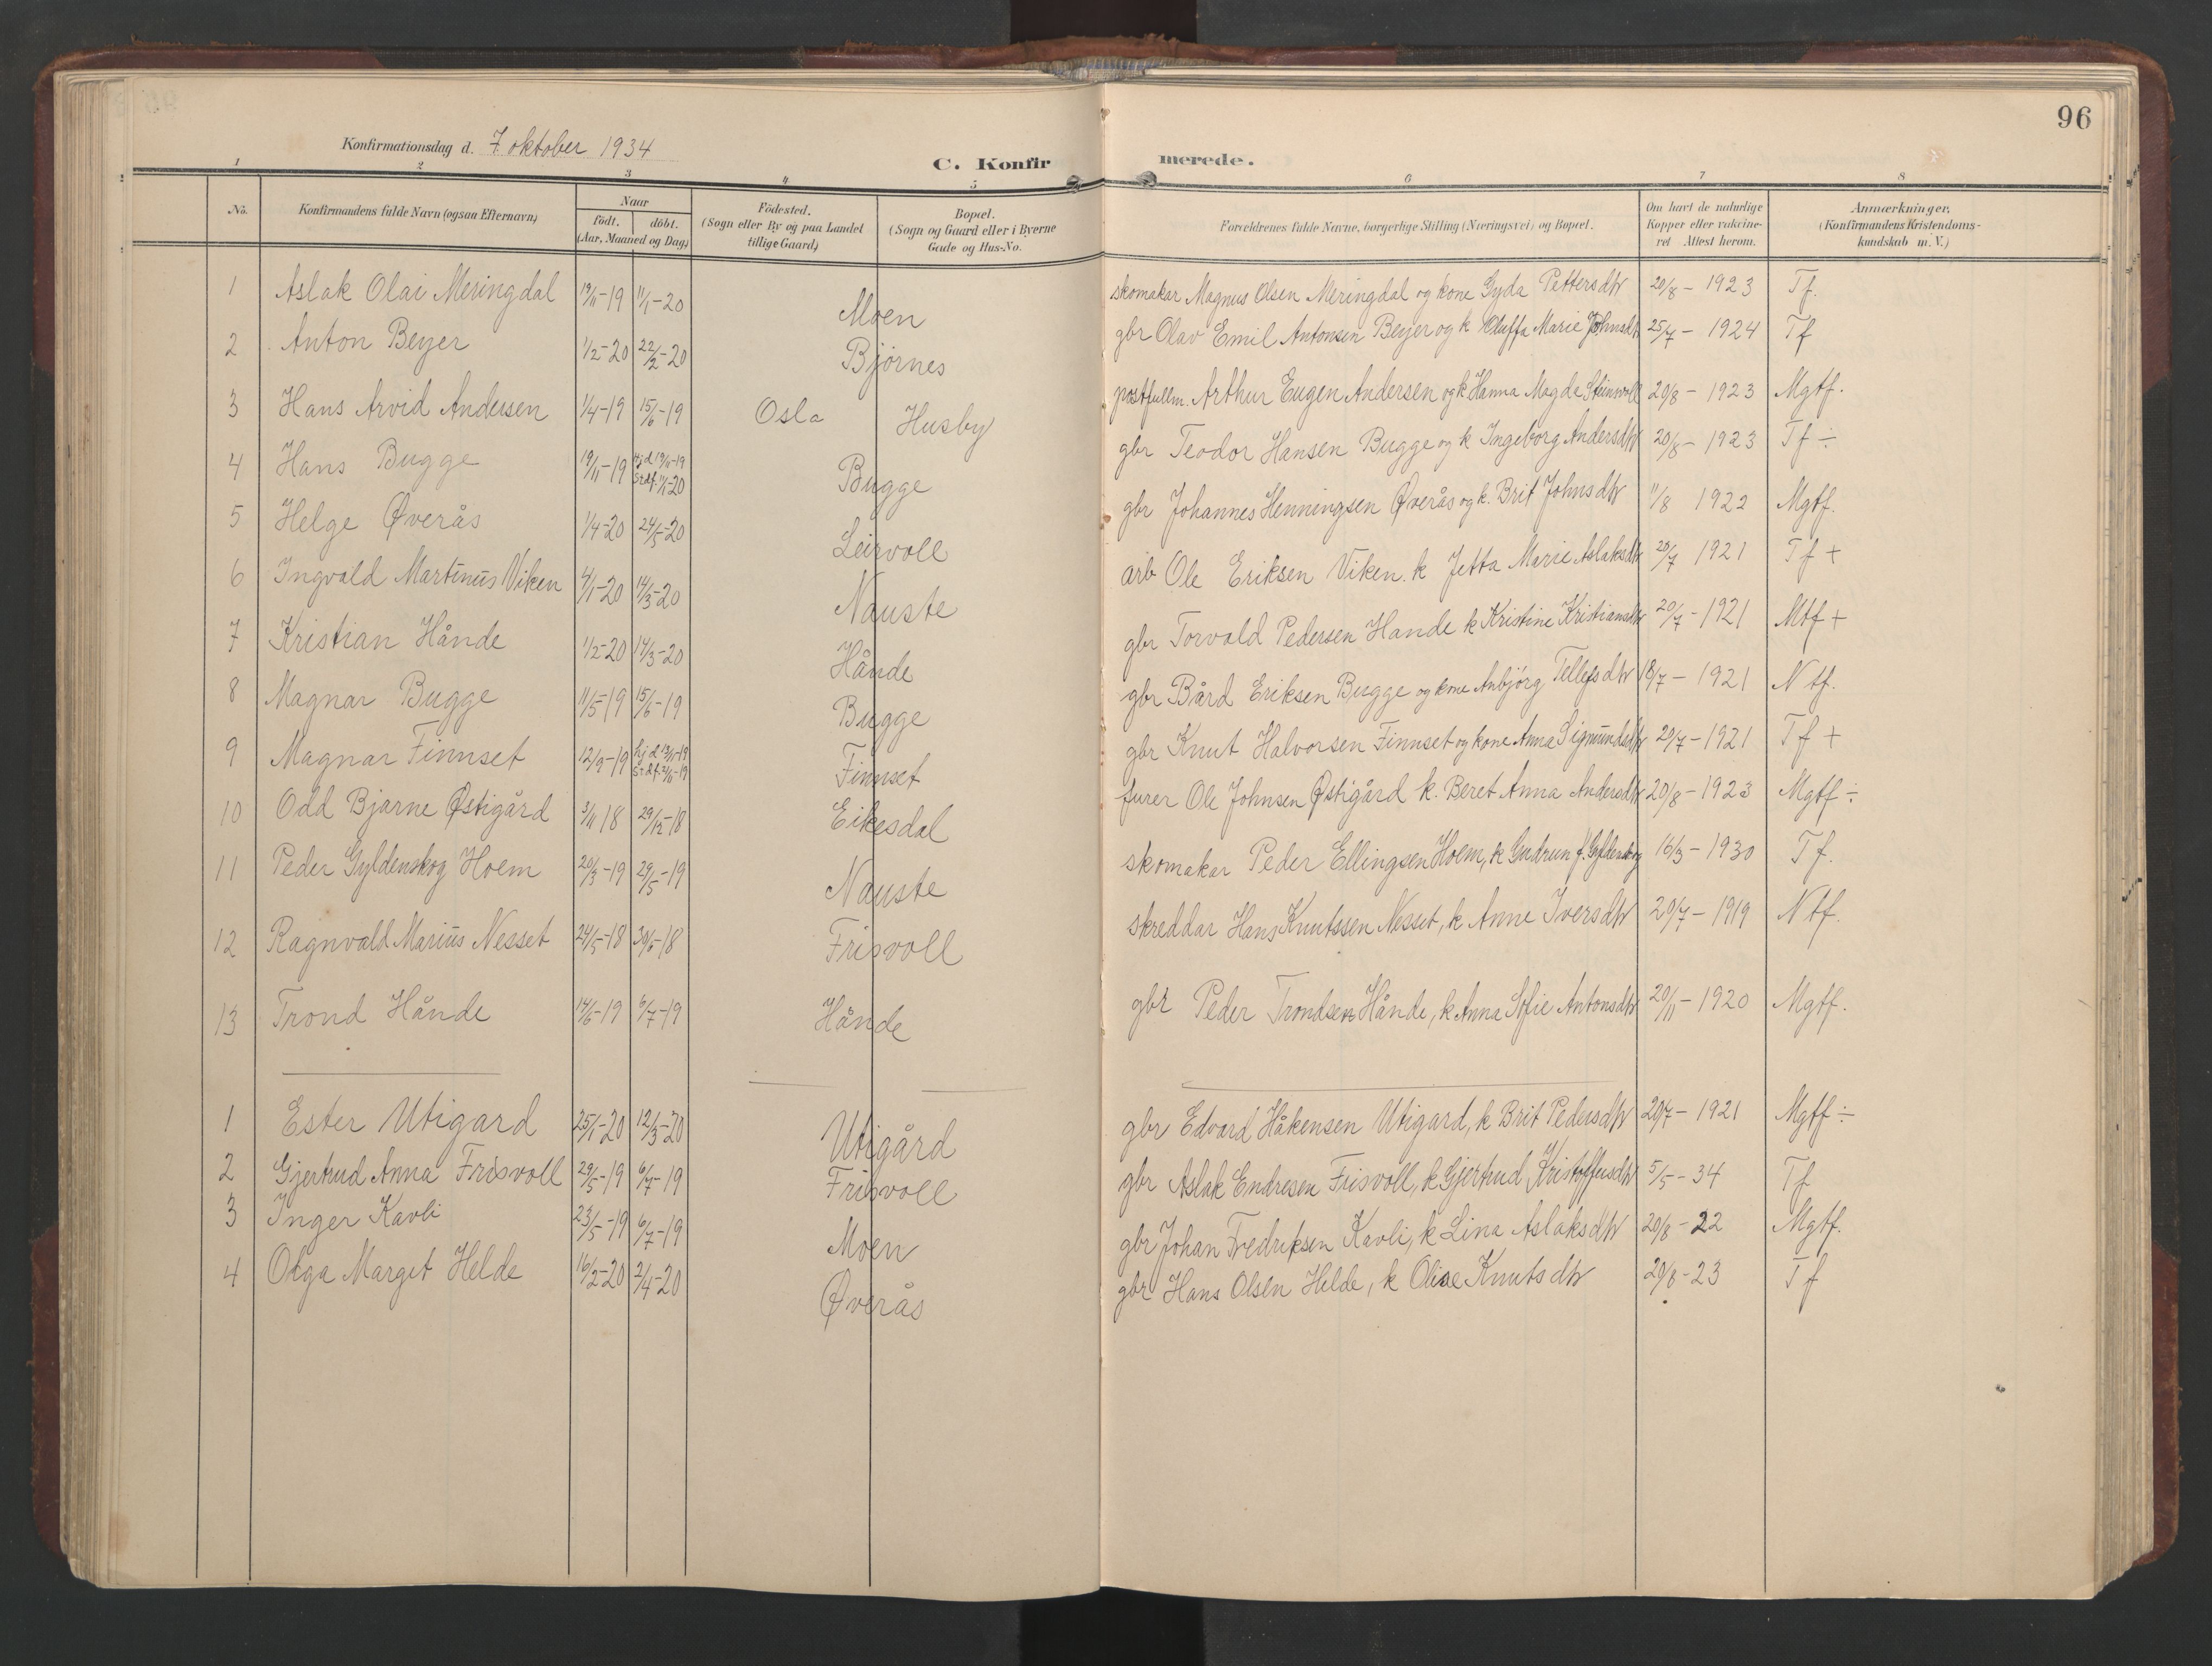 96
Konfirmationsdag d. 7 oktober 1934
C. Konfirmerede.
1 2 3 4 5 6 7 8
No. Konfirmandens fulde Navn (ogsaa Efternavn) Naar født. døbt. (Aar, Maaned og Dag) Födested. (Sogn eller By og paa Landet tillige Gaard) Bopæl. (Sogn og Gaard eller i Byerne Gade og Hus-No. Forældrenes fulde Navne, borgerlige Stilling (Næringsvei) og Bopæl. Om havt de naturlige Kopper eller vakcineret Attest herom. Anmærkninger. (Konfirmandens Kristendomskundskab m. V.)
1 Aslak Olai Meringdal 19/11-19 11/1-20 Moen skomakar Magnus Olsen Meringdal og kone Gyda Pettersdtr 20/8 - 1923 Tf.
2 Anton Beyer 1/2-20 22/2-20 Bjørnes gbr Olav Emil Antonsen Beyer og k Oluffa Marie Johnsdtr 25/7 - 1924 Tf
3 Hans Arvid Andersen 1/4-19 15/6-19 Oslo Husby postfullm. Arthur Eugen Andersen og k Hanna Magda Steinvoll 20/8 - 1923 Mgtf.
4 Hans Bugge 19/11-19 hj d 19/11-19 st df. 11/1-20 Bugge gbr Teodor Hansen Bugge og k Ingeborg Andersdtr 20/8 - 1923 Tf ÷
5 Helge Øverås 1/4-20 24/5-20 Leirvoll gbr Johannes Henningsen Øverås og k. Brit Johnsdtr 11/8 1922 Mgtf.
6 Ingvald Martinus Viken 4/1-20 14/3-20 Nauste arb Ole Eriksen Viken. k Jetta Marie Aslaksdtr 20/7 1921 Tf +
7 Kristian Hånde 1/2-20 14/3-20 Hånde gbr Torvald Pedersen Hande k Kristine Kristiansdtr 20/7 - 1921 Mtf +
8 Magnar Bugge 11/5-19 15/6-19 Bugge gbr Bård Eriksen Bugge og kone Anbjørg Tellefsdtr 18/7 - 1921 Ntf.
9 Magnar Finnset 12/9-19 hj d 13/9-19 st df. 2/11-19 Finnset gbr Knut Halvorsen Finnset og kone Anna Sigmundsdtr 20/7 - 1921 Tf +
10 Odd Bjarne Østigård 3/11 18 29/12-18 Eikesdal furer Ole Johnsen Østigård k. Beret Anna Andersdtr 20/8 - 1923 Mgtf ÷
11 Peder Gyldenskog Hoem 20/3-19 29/5-19 Nauste skomakar Peder Ellingsen Hoem, k Gudrun f. Gyldenskog 16/3 - 1930 Tf.
12 Ragnvald Marius Nesset 24/5-18 30/6-18 Frisvoll skreddar Hans Knutssen Nesset, k Anne Iversdtr 20/7 - 1919 Ntf.
13 Trond Hånde 14/6-19 6/7-19 Hånde gbr Peder Trondsen Hånde, k Anna Sofie Antonsdtr 20/11 - 1920 Mgtf.
1 Ester Utigard 25/1-20 12/3-20 Utigård gbr Edvard Håkensen Utigard, k Brit Pedersdtr 20/7 - 1921 Mgtf ÷
2 Gjertrud Anna Frisvoll 29/5-19 6/7-19 Frisvoll gbr Aslak Endresen Frisvoll, k Gjertrud Kristoffersdtr 5/5 - 34 Tf
3 Inger Kavli 23/5-19 6/7-19 Moen gbr Johan Fredriksen Kavli, k Lina Aslaksdtr 20/8 - 22 Mgtf.
4 Olga Margit Helde 16/2-20 2/4-20 Øverås gbr Hans Olsen Helde, k Olise Knutsdtr 20/8 - 23 Tf